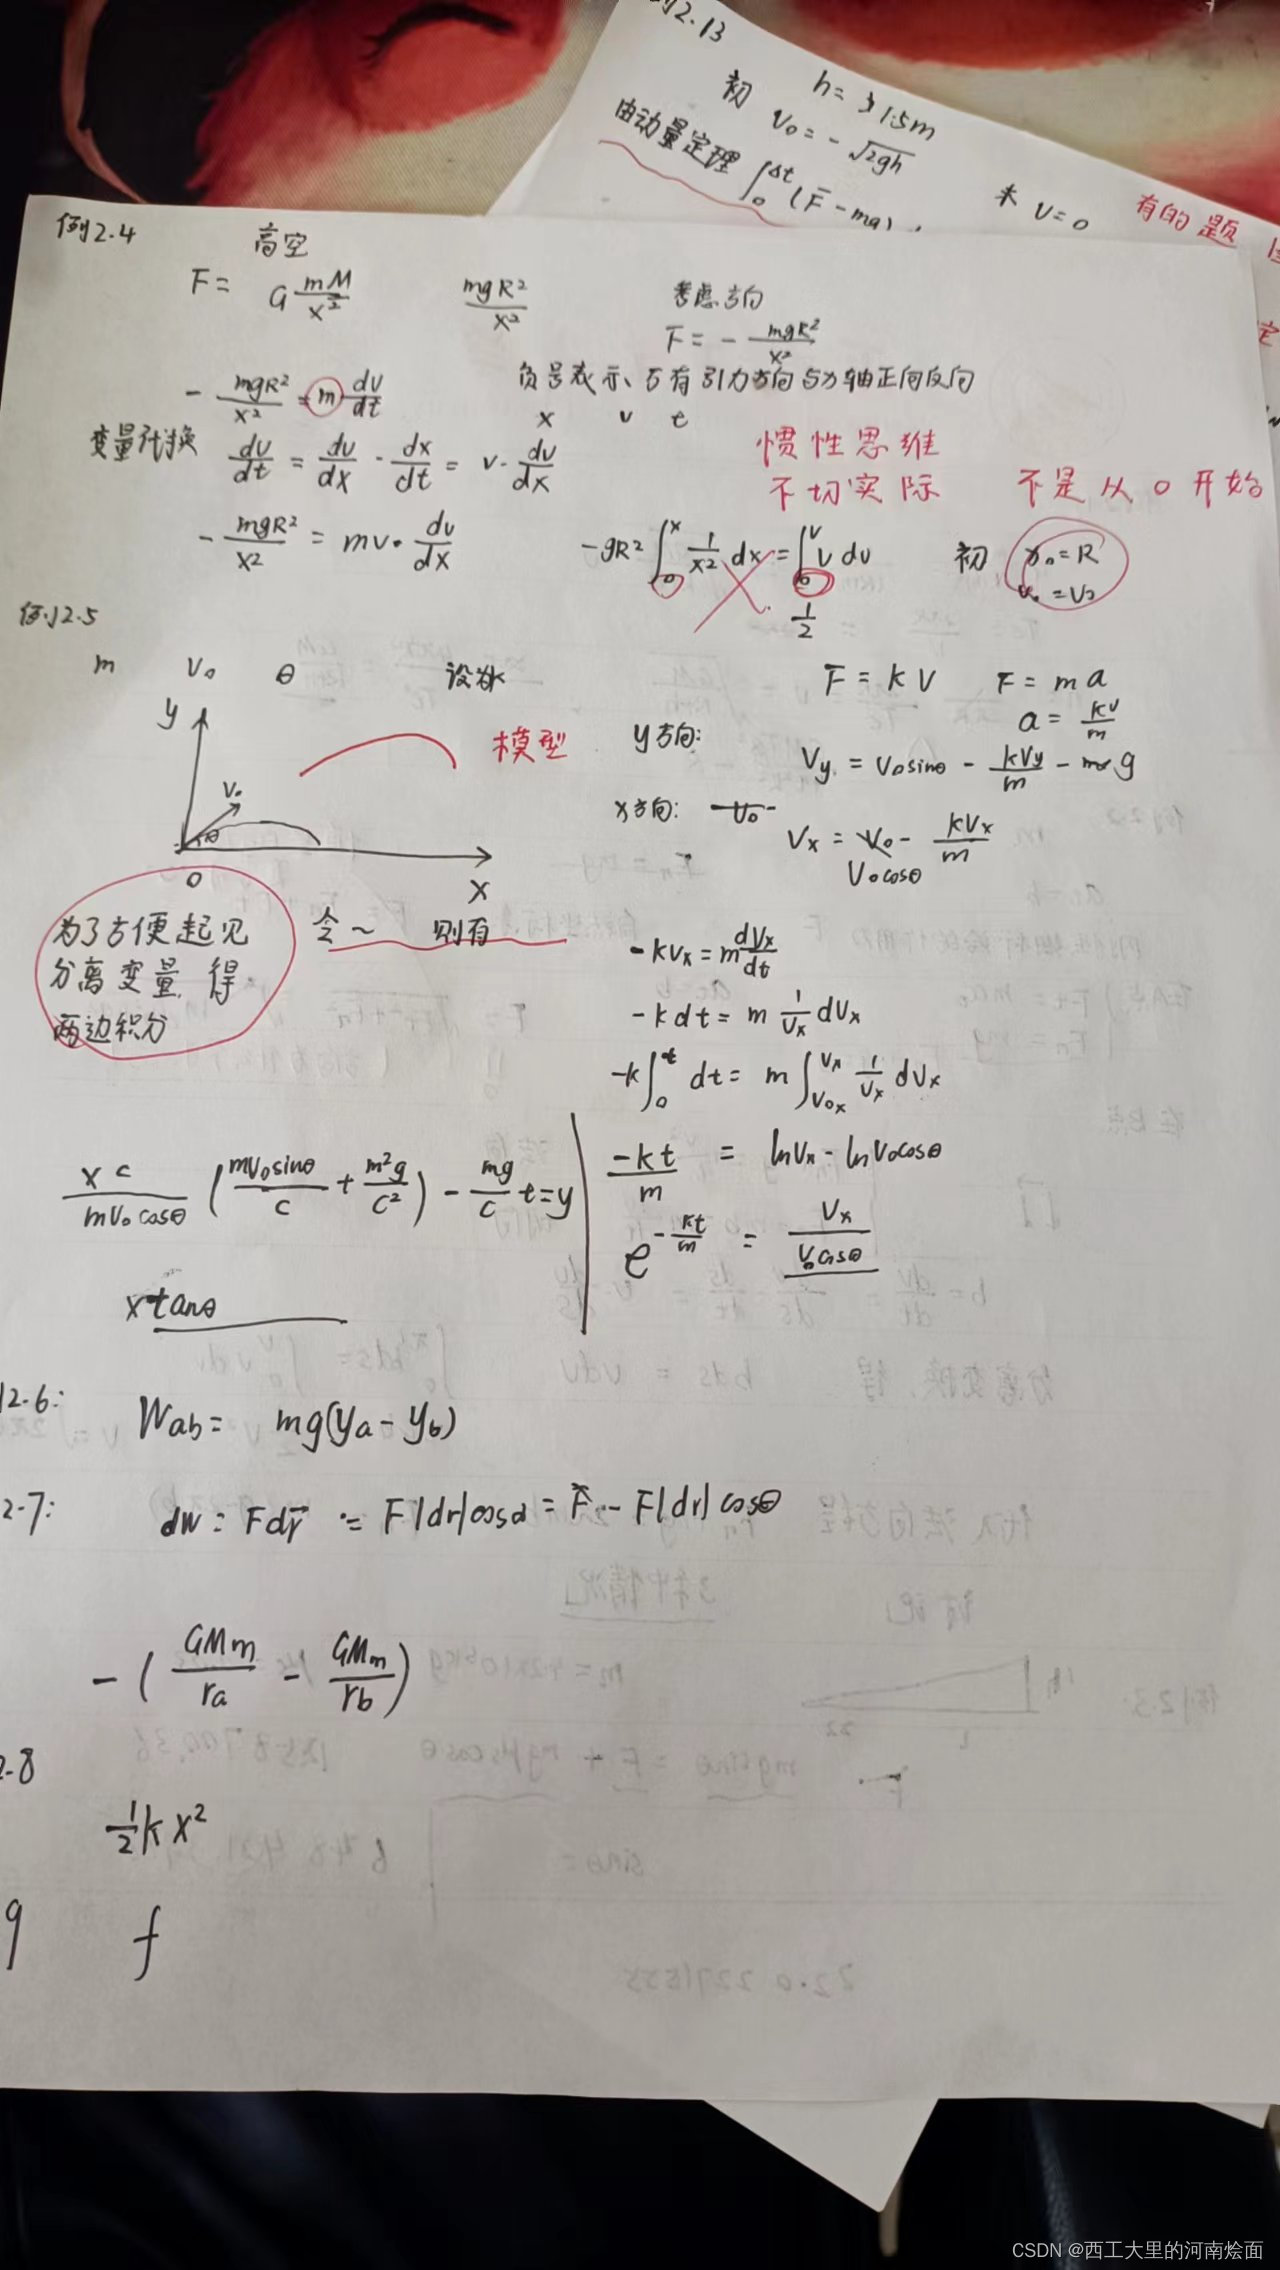 例2.13
h = 31.5m
初 V₀ = -√2gh
由动量定理 ∫₀^Δt (F̄ - mg)
末 V = 0
有的题
例2.4 高空
F = G mM/x² mgR²/x² 考虑方向
F = - mgR²/x²
- mgR²/x² = m dv/dt 负号表示万有引力方向与x轴正向反向
x v t
变量代换 dv/dt = dv/dx · dx/dt = v · dv/dx
惯性思维
不切实际 不是从0开始
- mgR²/x² = mv · dv/dx -gR² ∫₀^x 1/x² dx = ∫₀^v v dv 初 x₀ = R
v₀ = v₀
1/2
例2.5
m V₀ θ
F = kV F = ma
a = kv/m
y
模型
y方向: Vy = V₀sinθ - kVy/m - g
V₀
θ
x方向: V₀
Vx = V₀ - kVx/m
V₀cosθ
0 x
为了方便起见 令~ 则有
分离变量,得
两边积分
-kvx = m dVx/dt
-kdt = m 1/Vx dVx
-k ∫₀^t dt = m ∫_V₀x^Vx 1/Vx dVx
xc/mV₀cosθ (mV₀sinθ/c + m²g/c²) - mg/c t = y
-kt/m = lnVx - lnV₀cosθ
e^-kt/m = Vx/V₀cosθ
xtanθ
12.6: Wab = mg(ya - yb)
2-7: dw = Fdr⃗ = F|dr|cosα = F - F|dr|cosθ
- (GMm/ra - GMm/rb)
2.8
½kx²
9 f
CSDN @西工大里的河南烩面